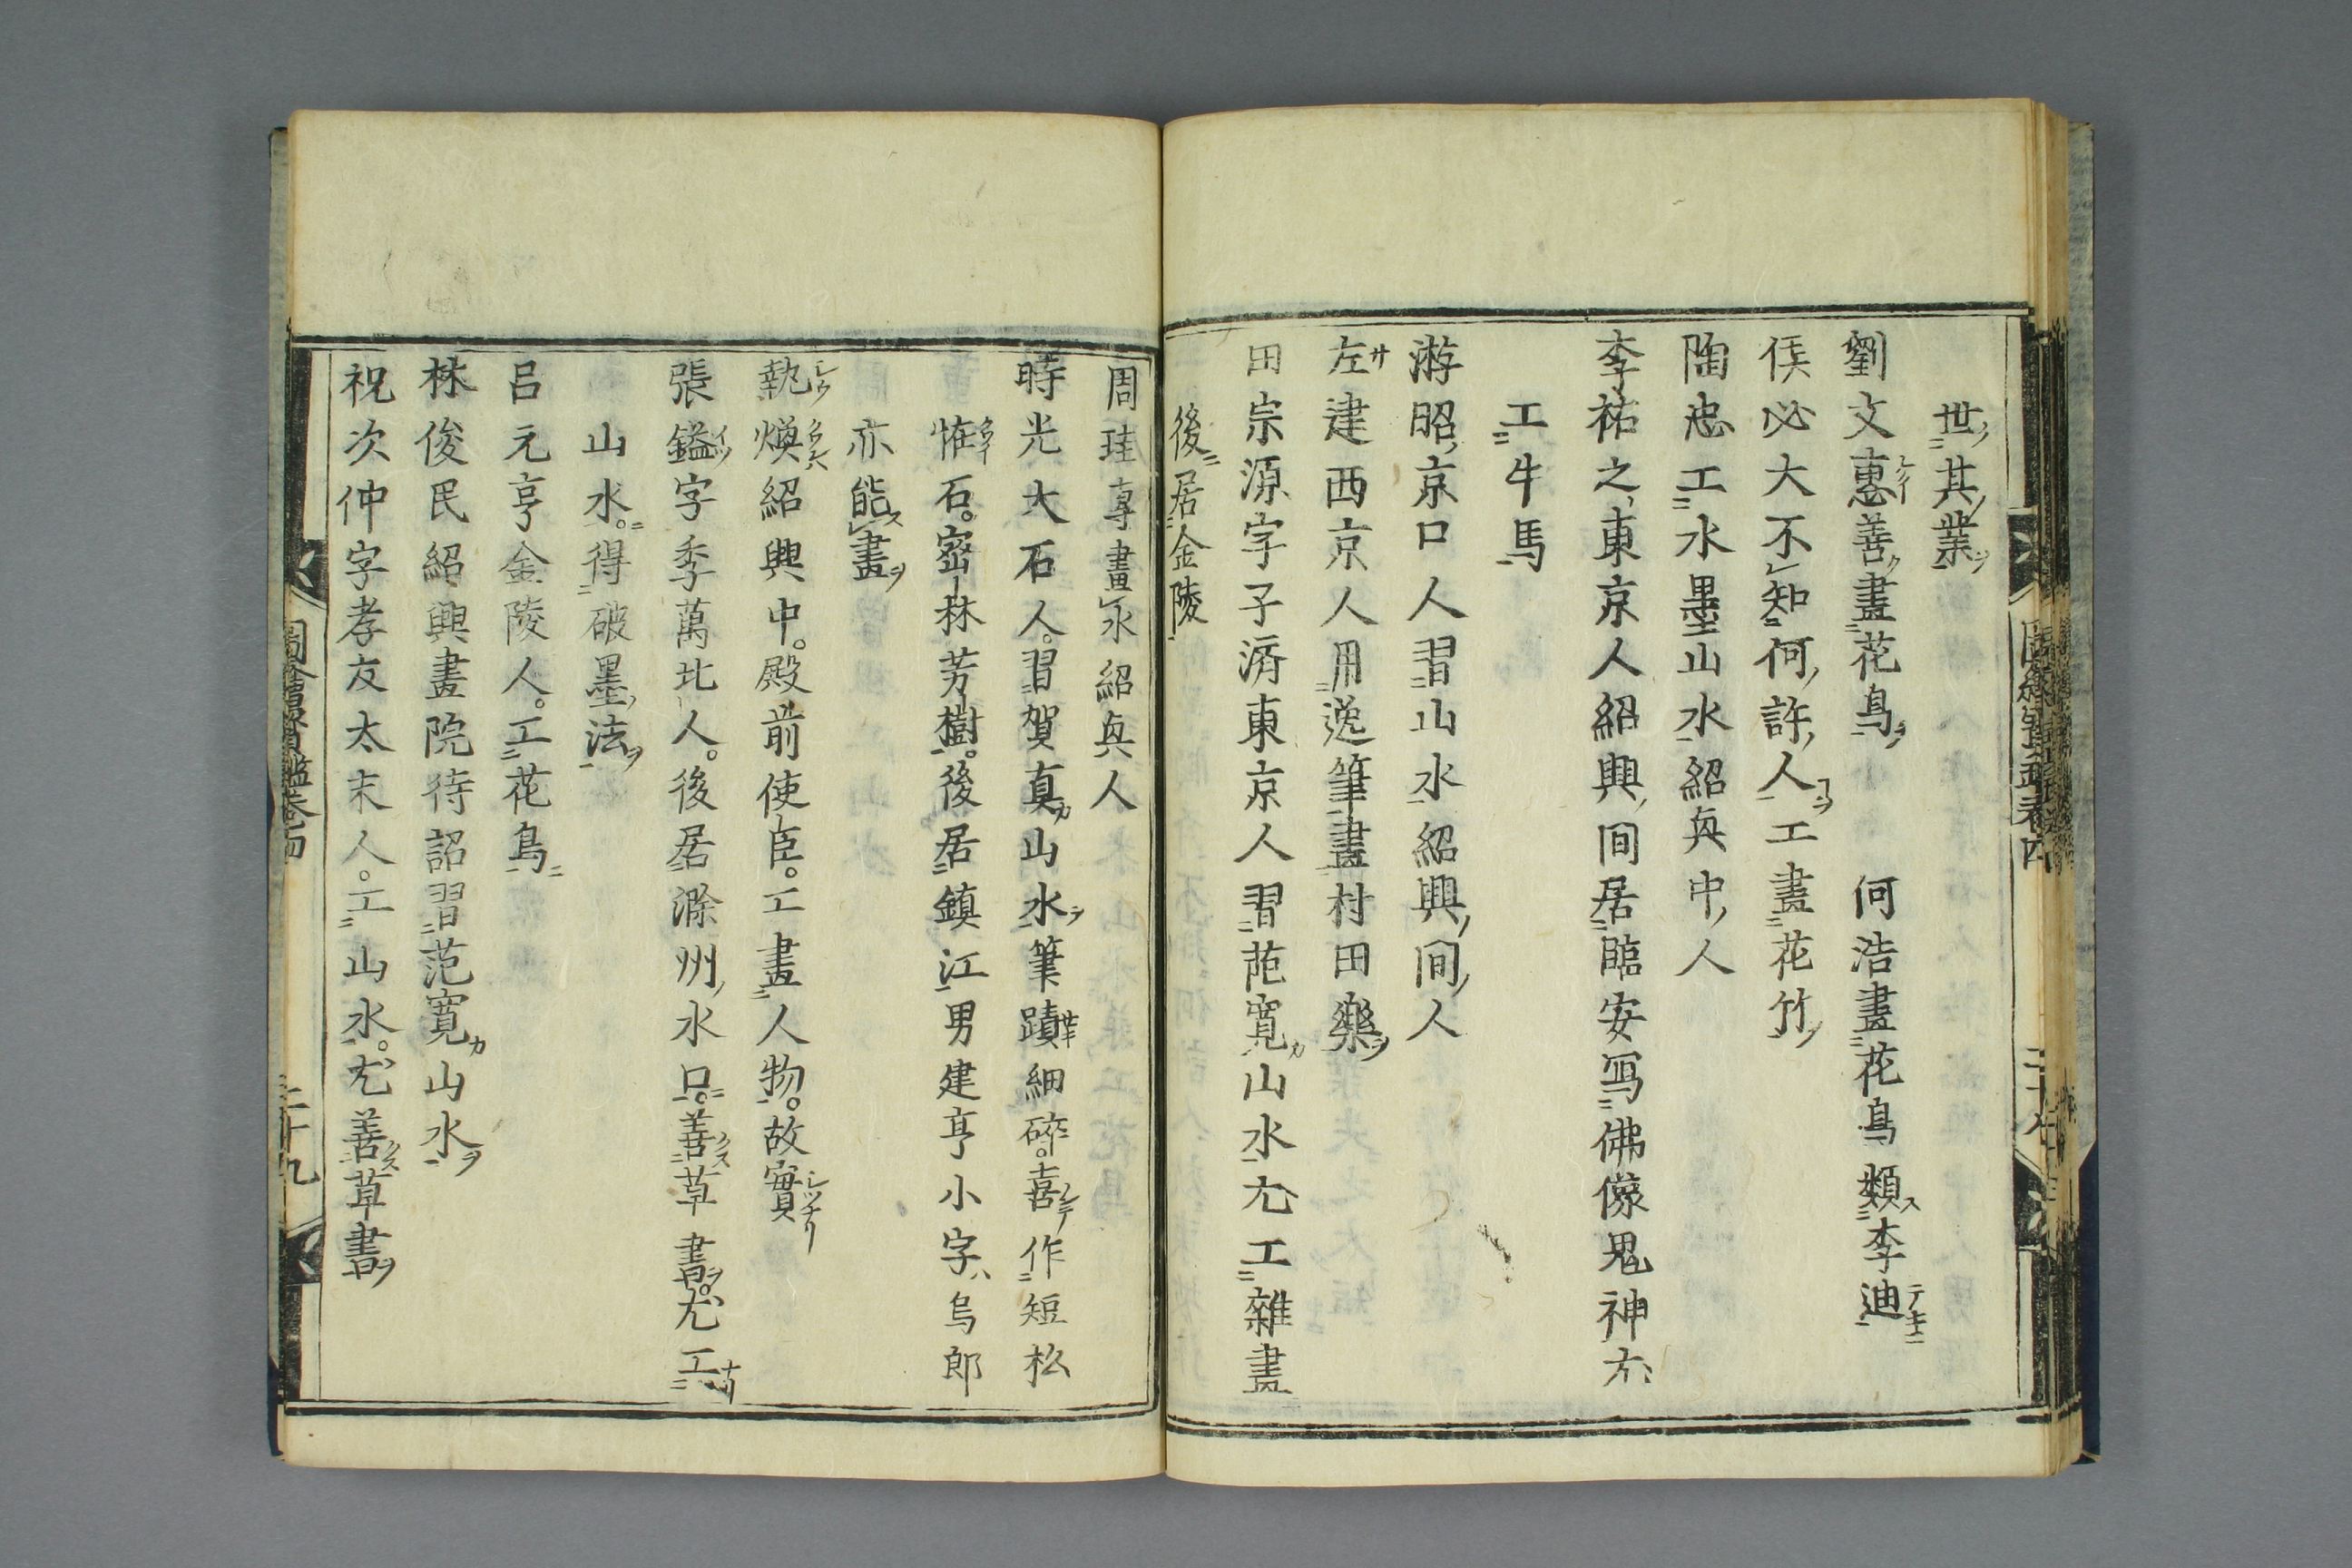 世其業
劉文惠善畫花鳥　何浩畫花鳥類李迪
侯必大不知何許人工畫花竹
陶忠工水墨山水紹興中人
李祐之東京人紹興間居臨安寫佛像鬼神亦
工牛馬
游昭京口人習山水紹興間人
左建西京人用逸筆畫村田樂
田宗源字子濟東京人習范寬山水尤工雜畫
後居金陵
周珪專畫水紹興人
時光大石人。習賀真山水筆蹟細碎。喜作短松
恠石。密林芳樹。後居鎮江男建亨小字烏郎
亦能畫
執煥紹興中。殿前使臣。工畫人物。故實
張鎰字季萬北人。後居滁州水口。善草書。尤工
山水。得破墨法
呂元亨金陵人。工花鳥
林俊民紹興畫院待詔習范寬山水
祝次仲字孝友太末人。工山水。尤善草書
圖繪寶鑑卷四
二十九